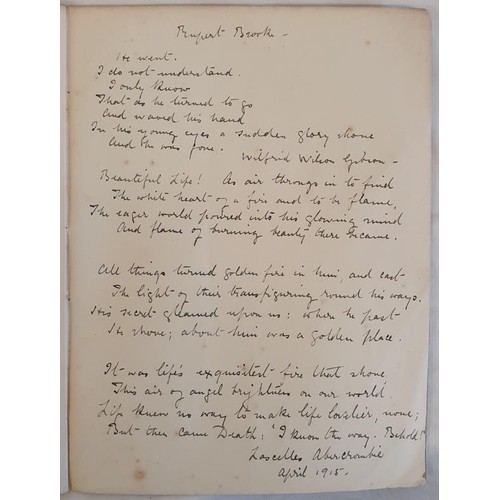 Rupert Brooke —
He went.
I do not understand.
I only know
That as he turned to go
And waved his hand
In his young eyes a sudden glory shone
And he was gone.
Wilfrid Wilson Gibson —
Beautiful Life! As air throngs in to find
The white heart of a fire and to be flame,
The eager world poured into his glowing mind
And flame of burning beauty there became.
All things turned golden fire in him, and cast
The light of their transfiguring round his ways.
His secret gleamed upon us: where he past
He shone; about him was a golden place.
It was life's exquisitest fire that shone
This air of angel brightness on our world.
Life knew no way to make life lovelier, none;
But then came Death: "I know the way. Behold!"
Lascelles Abercrombie
April 1915.